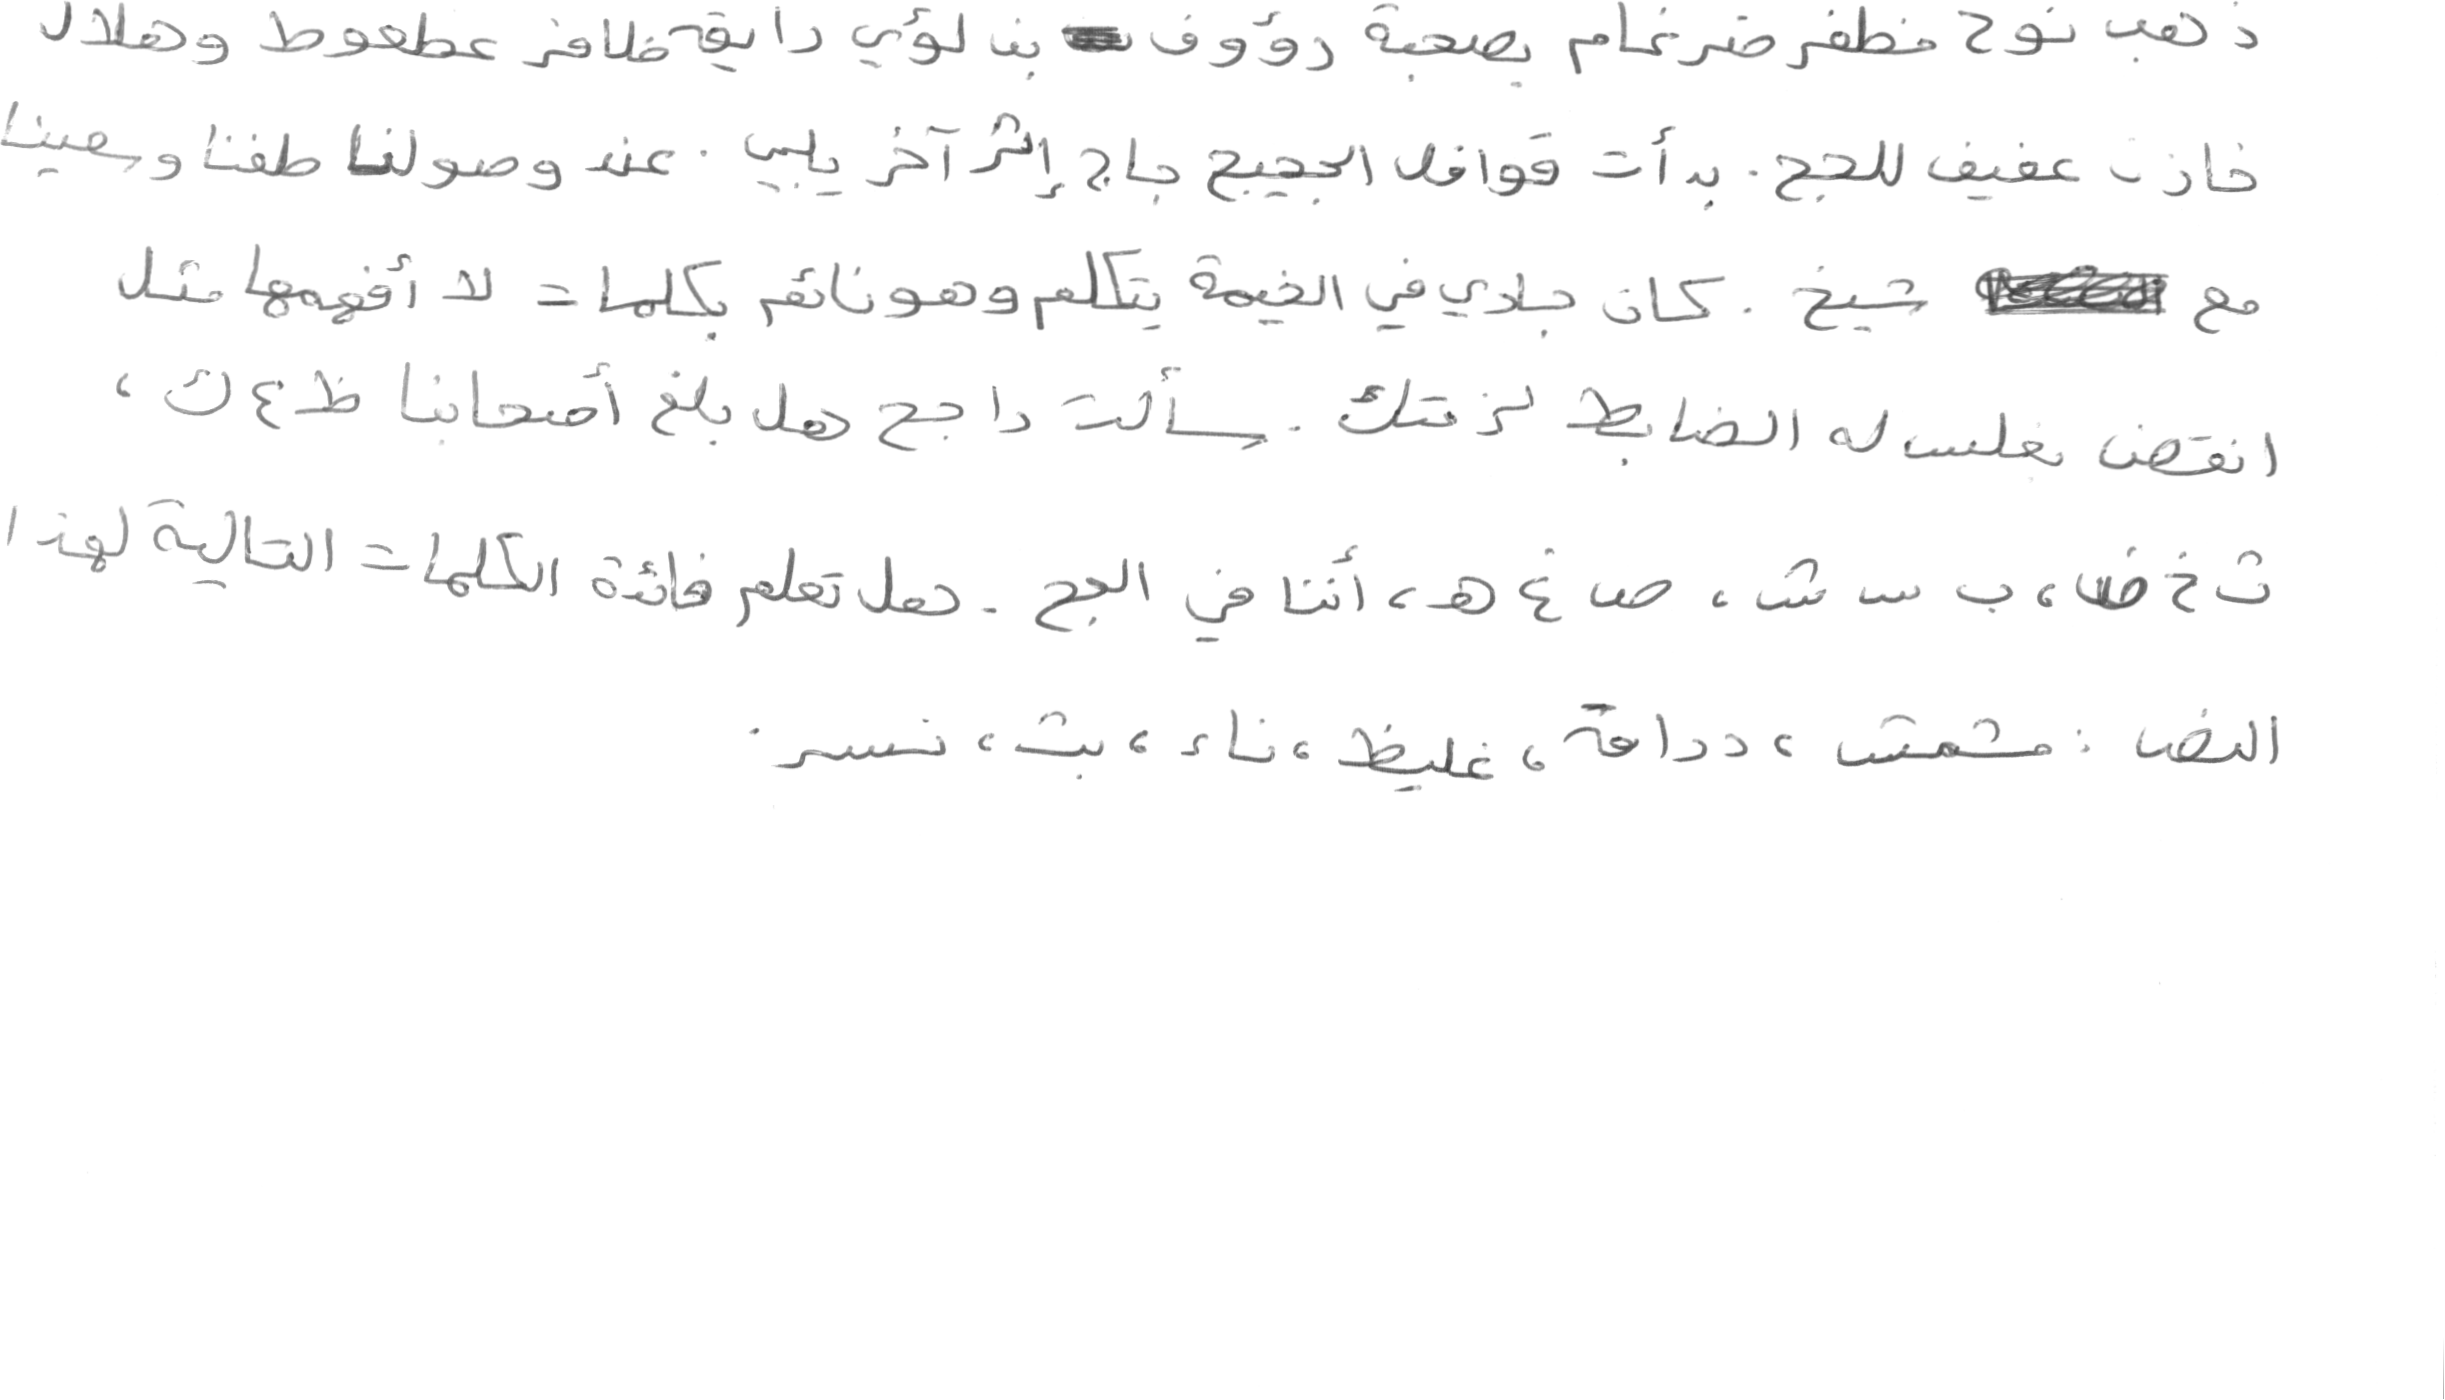 ذهب نوح مظفر ضرغام بصحبة رؤوف بن لؤي رايق ظافر عطعوط وهلال
خازن عفيف للحج. بدأت قوافل الحجيج حاج إثر آخر يلبي. عند وصولنا طفنا وسعينا
مع شيخ. كان جاري في الخيمة يتكلم وهو نائم بكلمات لا أفهمها مثل
انقض بغلس له الضابط لزمتك. سألت راجح هل بلغ أصحابنا ظ ع ك،
ث خ ض، ب س ش، ص غ هـ، أننا في الحج. هل تعلم فائدة الكلمات التالية لهذا
النص: مشمش، دراعة، غليظ، ناء، بث، نسر.